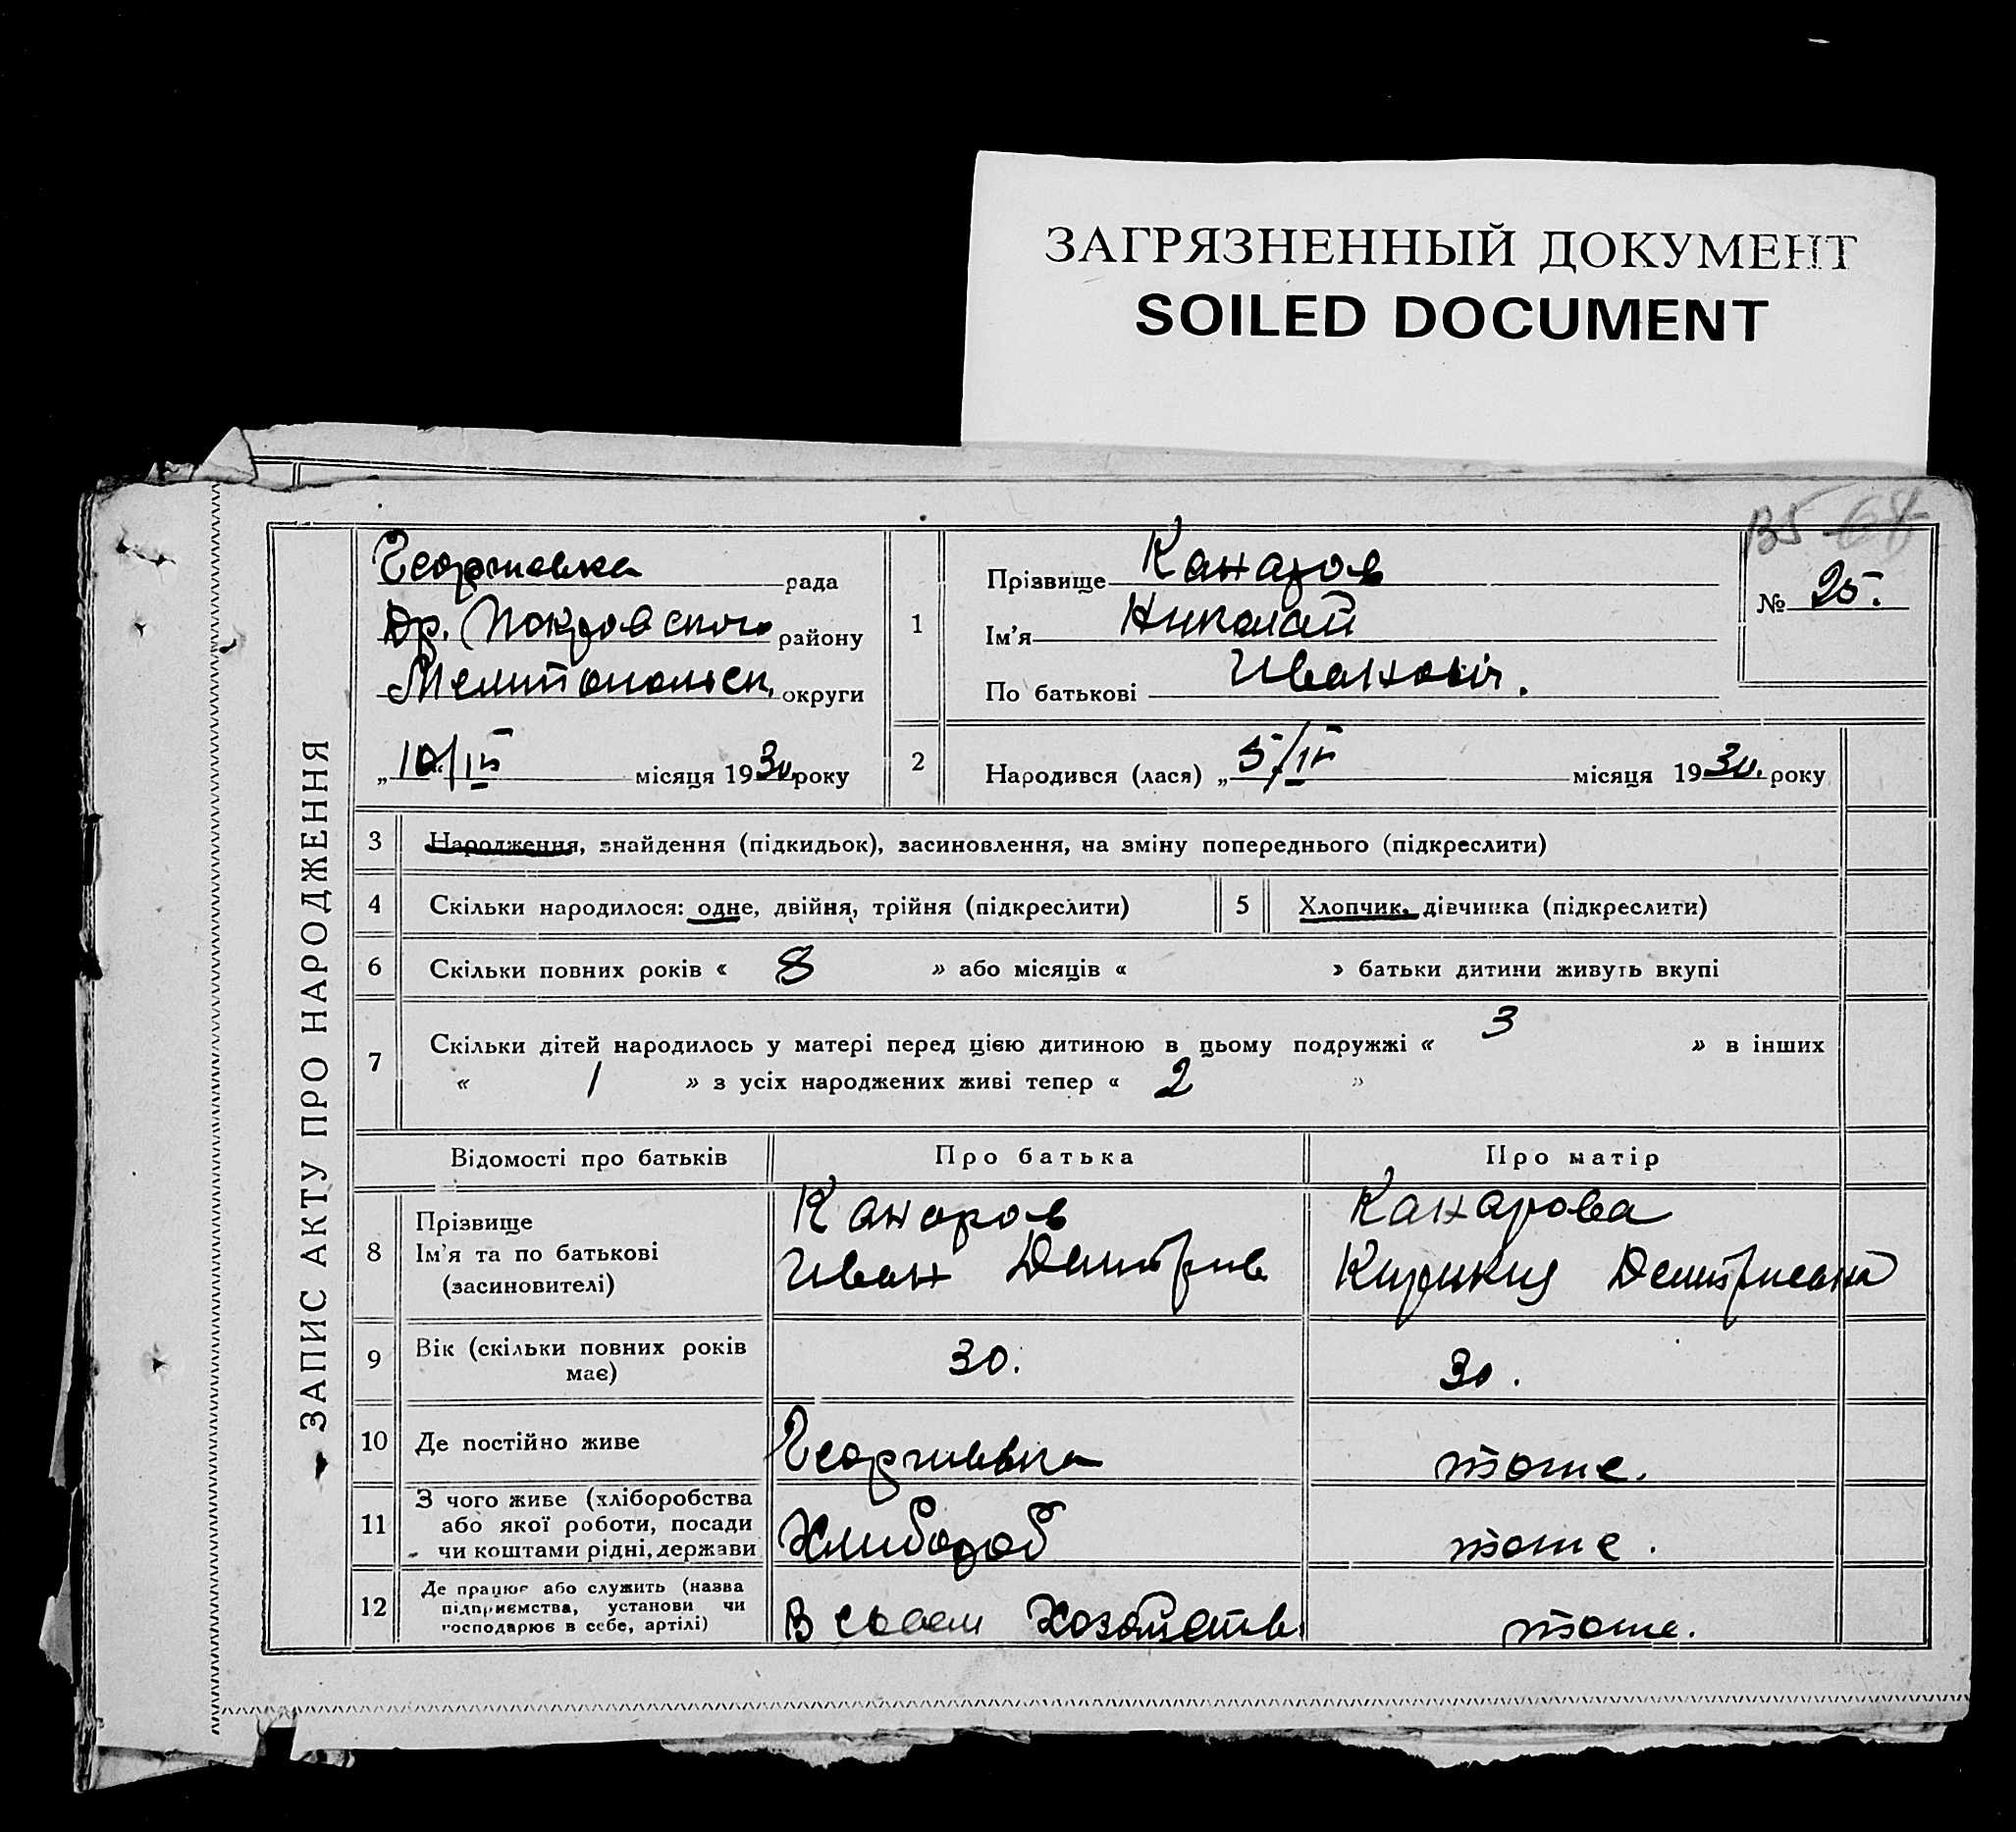 ЗАГРЯЗНЕННЫЙ ДОКУМЕНТ
SOILED DOCUMENT
В5 68
ЗАПИС АКТУ ПРО НАРОДЖЕННЯ
Георгиевка рада
Др. Покровского району
Мелитопольск. округи
„10“/IV місяця 1930 року
1
Прізвище Канаров
Ім’я Николай
По батькові Иванович.
№ 25.
2 Народився (лася) „5/IV місяця 1930. року
3 Народження, знайдення (підкидьок), засиновлення, на зміну попереднього (підкреслити)
4 Скільки народилося: одне, двійня, трійня (підкреслити)
5 Хлопчик, дівчинка (підкреслити)
6 Скільки повних років « 8 » або місяців « » батьки дитини живуть вкупі
7 Скільки дітей народилось у матері перед цією дитиною в цьому подружжі « 3 » в інших
« 1 » з усіх народжених живі тепер « 2 »
Відомості про батьків Про батька Про матір
8 Прізвище Канаров Канарова
Ім’я та по батькові Иван Дмитрив
(засиновителі)
9 Вік (скільки повних років має) 30. 30.
10 Де постійно живе Георгиевка тоже.
11 З чого живе (хліборобства
або якої роботи, посади
чи коштами рідні, держави Хлибороб тоже.
12 Де працює або служить (назва
підприємства, установи чи
господарює в себе, артілі) В своем Хозяйств. тоже.